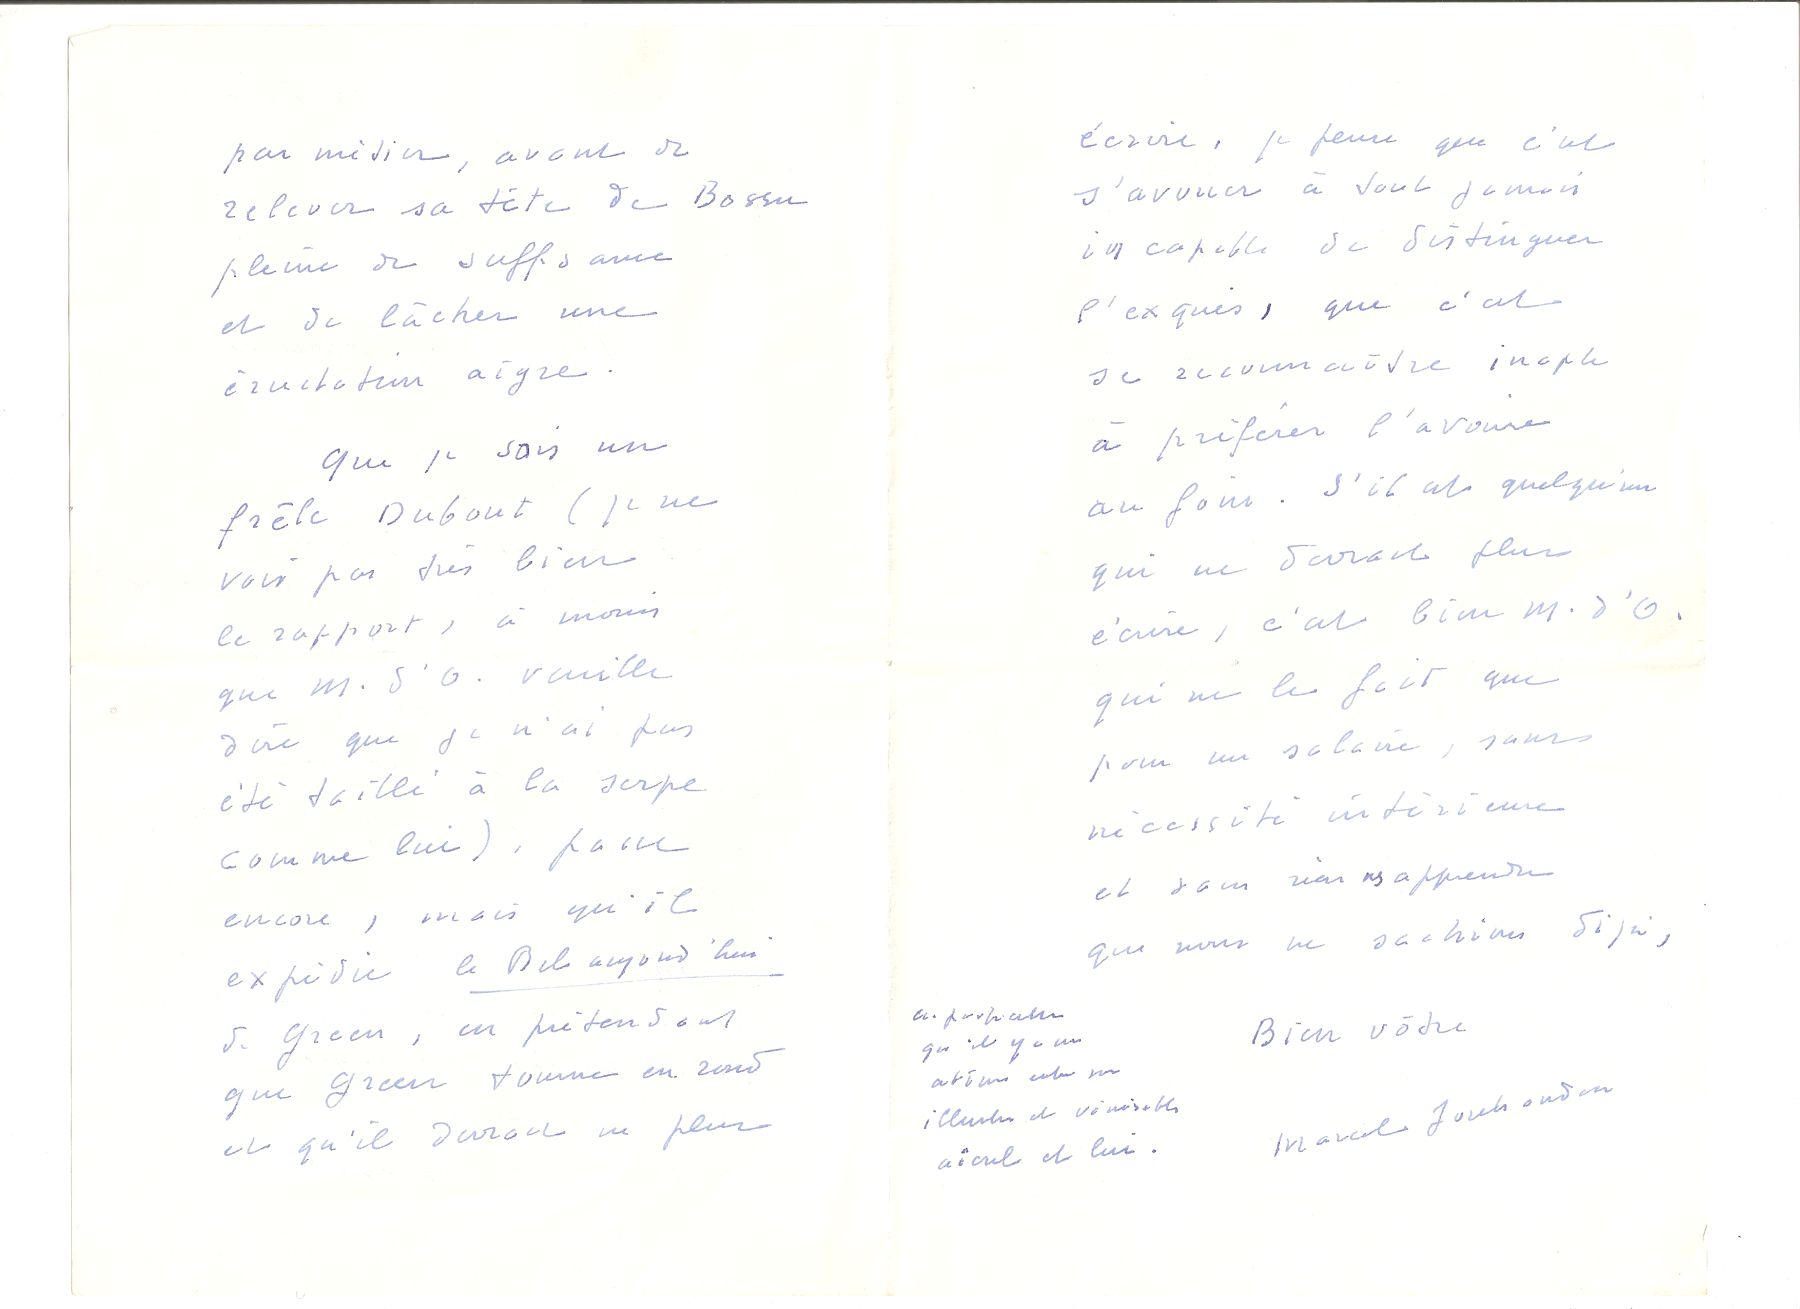 par médire, avant de
relever sa tête de Bossu
pleine de suffisance
et de lâcher une
éructation aigre.
Que je sois un
frêle Dubout (je ne
vois pas très bien
le rapport, à moins
que M. d'O. veuille
dire que je n'ai pas
été taillé à la serpe
comme lui), passe
encore, mais qu'il
expédie le Bel aujourd'hui
de Green, en prétendant
que Green tourne en rond
et qu'il devrait ne plus
écrire, je pense que c'est
s'avouer à tout jamais
incapable de distinguer
l'exquis, que c'est
se reconnaître inapte
à préférer l'avoine
au foin. S'il est quelqu'un
qui ne devrait plus
écrire, c'est bien M. d'O.
qui ne le fait que
pour un salaire, sans
nécessité intérieure
et sans rien ns apprendre
que nous ne sachions déjà,
qu'il y a un
abîme entre son
illustre et vénérable
aïeul et lui.
Bien vôtre
Marcel Jouhandeau